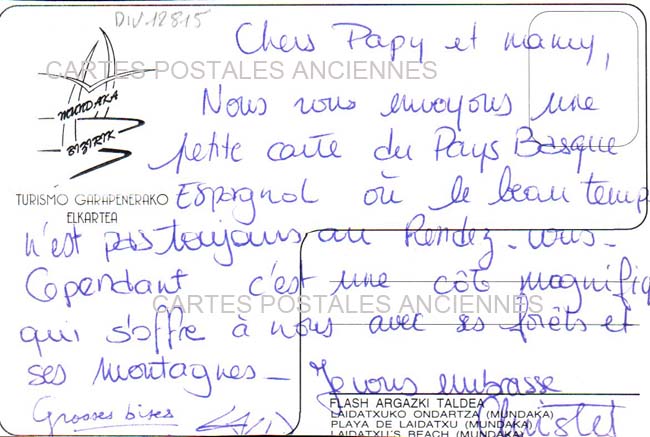 DIV.12815
Chers Papy et mamy,
CARTES POSTALES ANCIENNES
MUNDAKA
BIZIRIK
Nous vous envoyons une
petite carte du Pays Basque
TURISMO GARAPENERAKO
ELKARTEA
Espagnol où le beau temp
n'est pas toujours au Rendez-vous.
Cependant c'est une côte magnifiq
CARTES POSTALES ANCIENNES
qui s'offre à nous avec ses forêts et
ses montagnes_
Je vous embrasse
Grosses bises
FLASH ARGAZKI TALDEA
LAIDATXUKO ONDARTZA (MUNDAKA)
PLAYA DE LAIDATXU (MUNDAKA)
LAIDATXU'S BEACH (MUNDAKA)